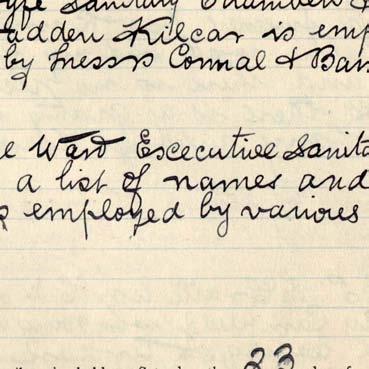 Sanitary Chambers
adden Kilcar is emp
by Messrs Connal & Bar
e Ward Excecutive Sanita
a list of names and
s employed by various
23